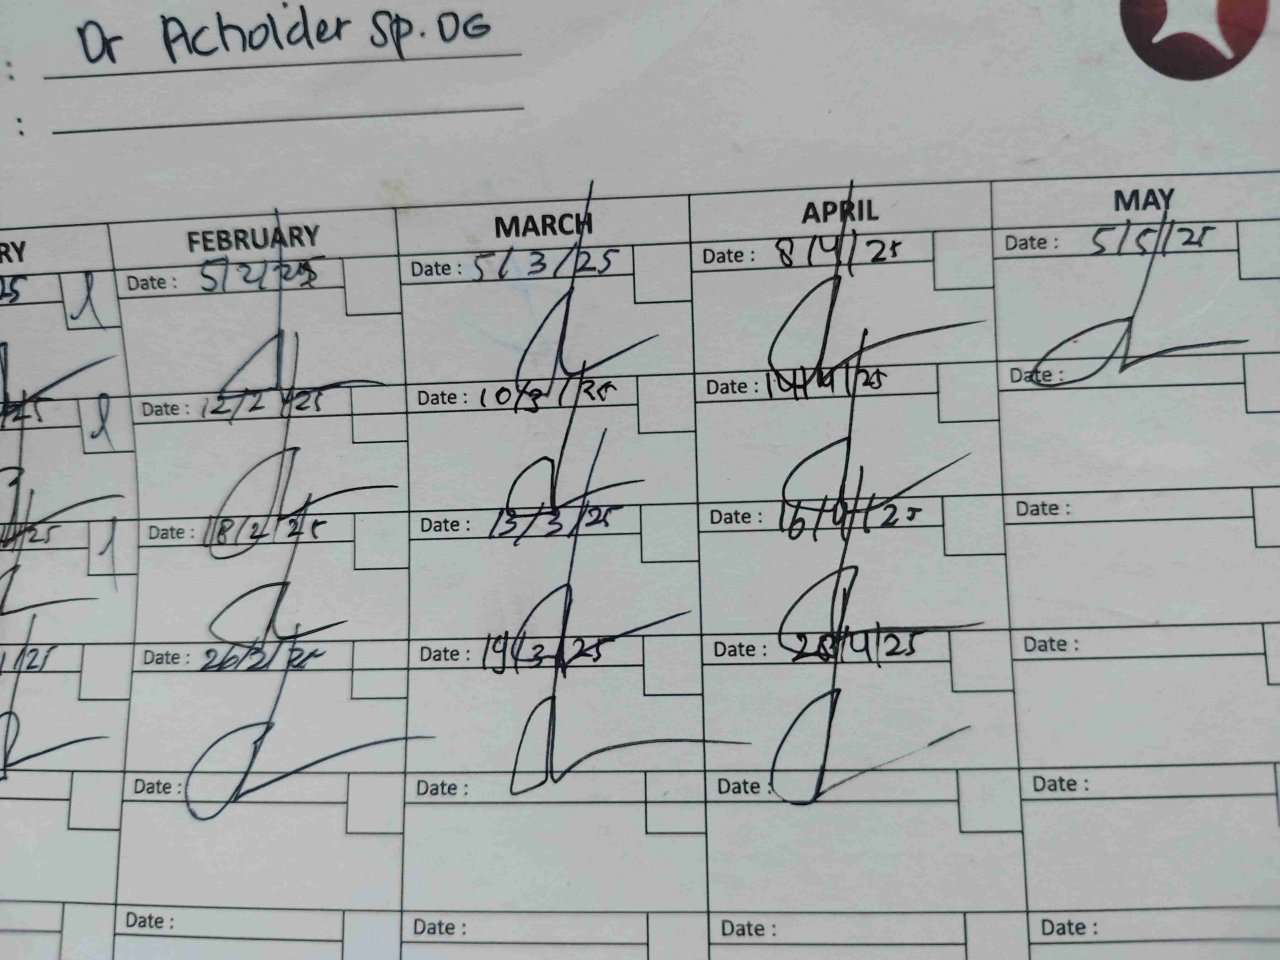 : Dr Acholder Sp. OG
:
RY FEBRUARY MARCH APRIL MAY
25 Date : 5/2/25 Date : 5/3/25 Date : 8/4/25 Date : 5/5/25
25 Date : 12/2/25 Date : 10/3/25 Date : 14/4/25 Date :
25 Date : 18/2/25 Date : 13/3/25 Date : 16/4/25 Date :
/25 Date : 26/2/25 Date : 19/3/25 Date : 28/4/25 Date :
Date : Date : Date : Date :
Date : Date : Date : Date :